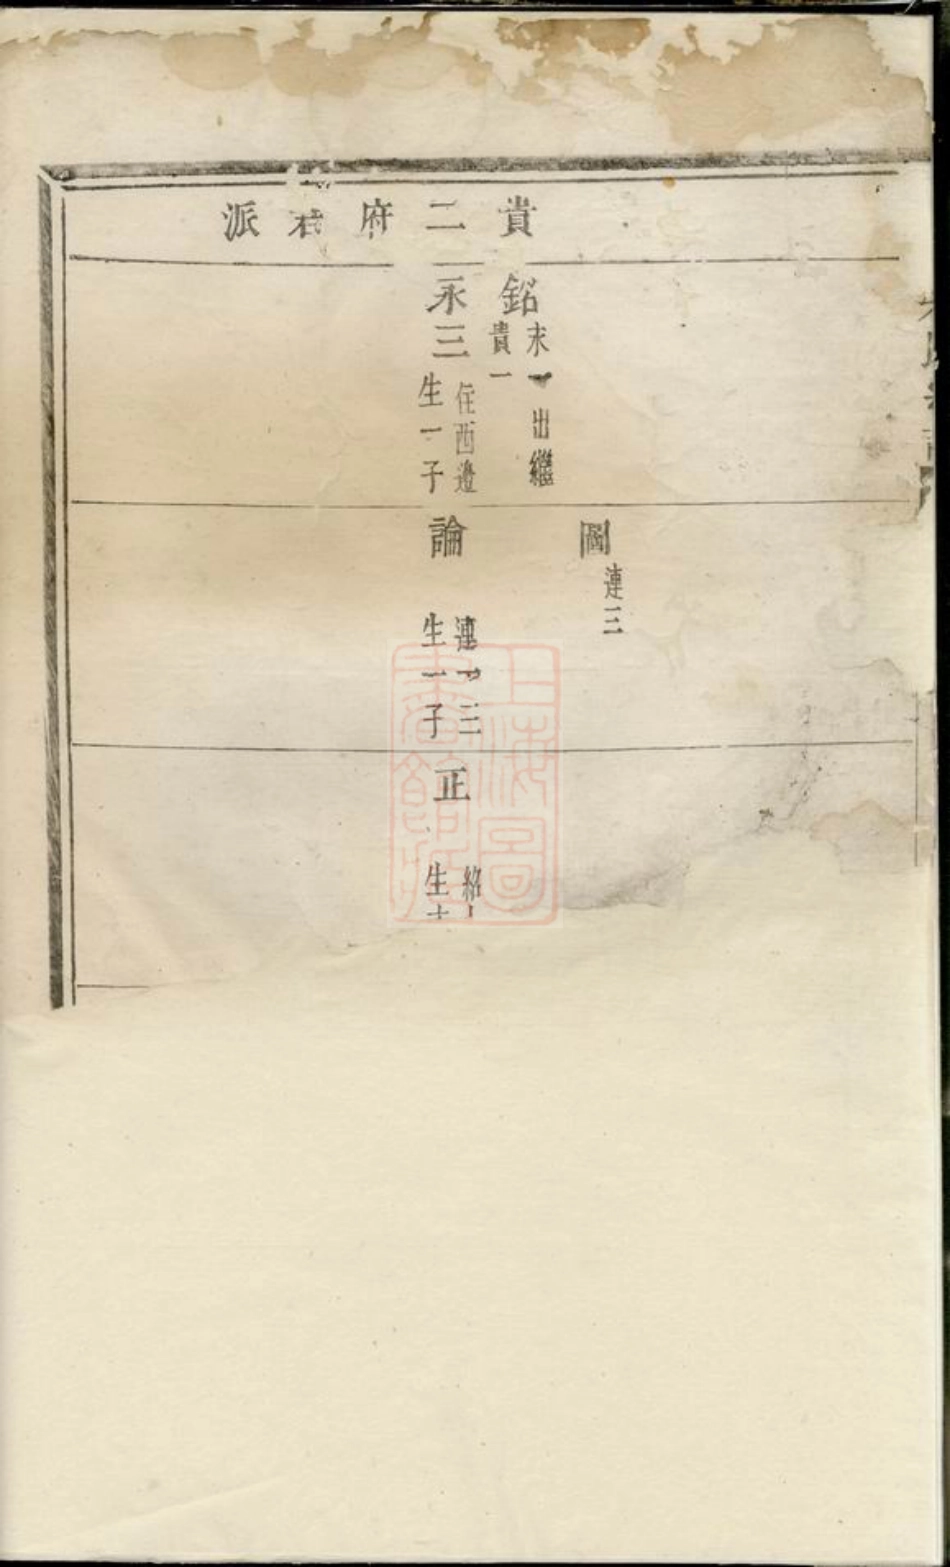 貴二府君派
銘
末一出繼
貴一
永三
住西邊
生一子
連三
論
連一
三
生一子
正
紹
生
上海圖書館藏